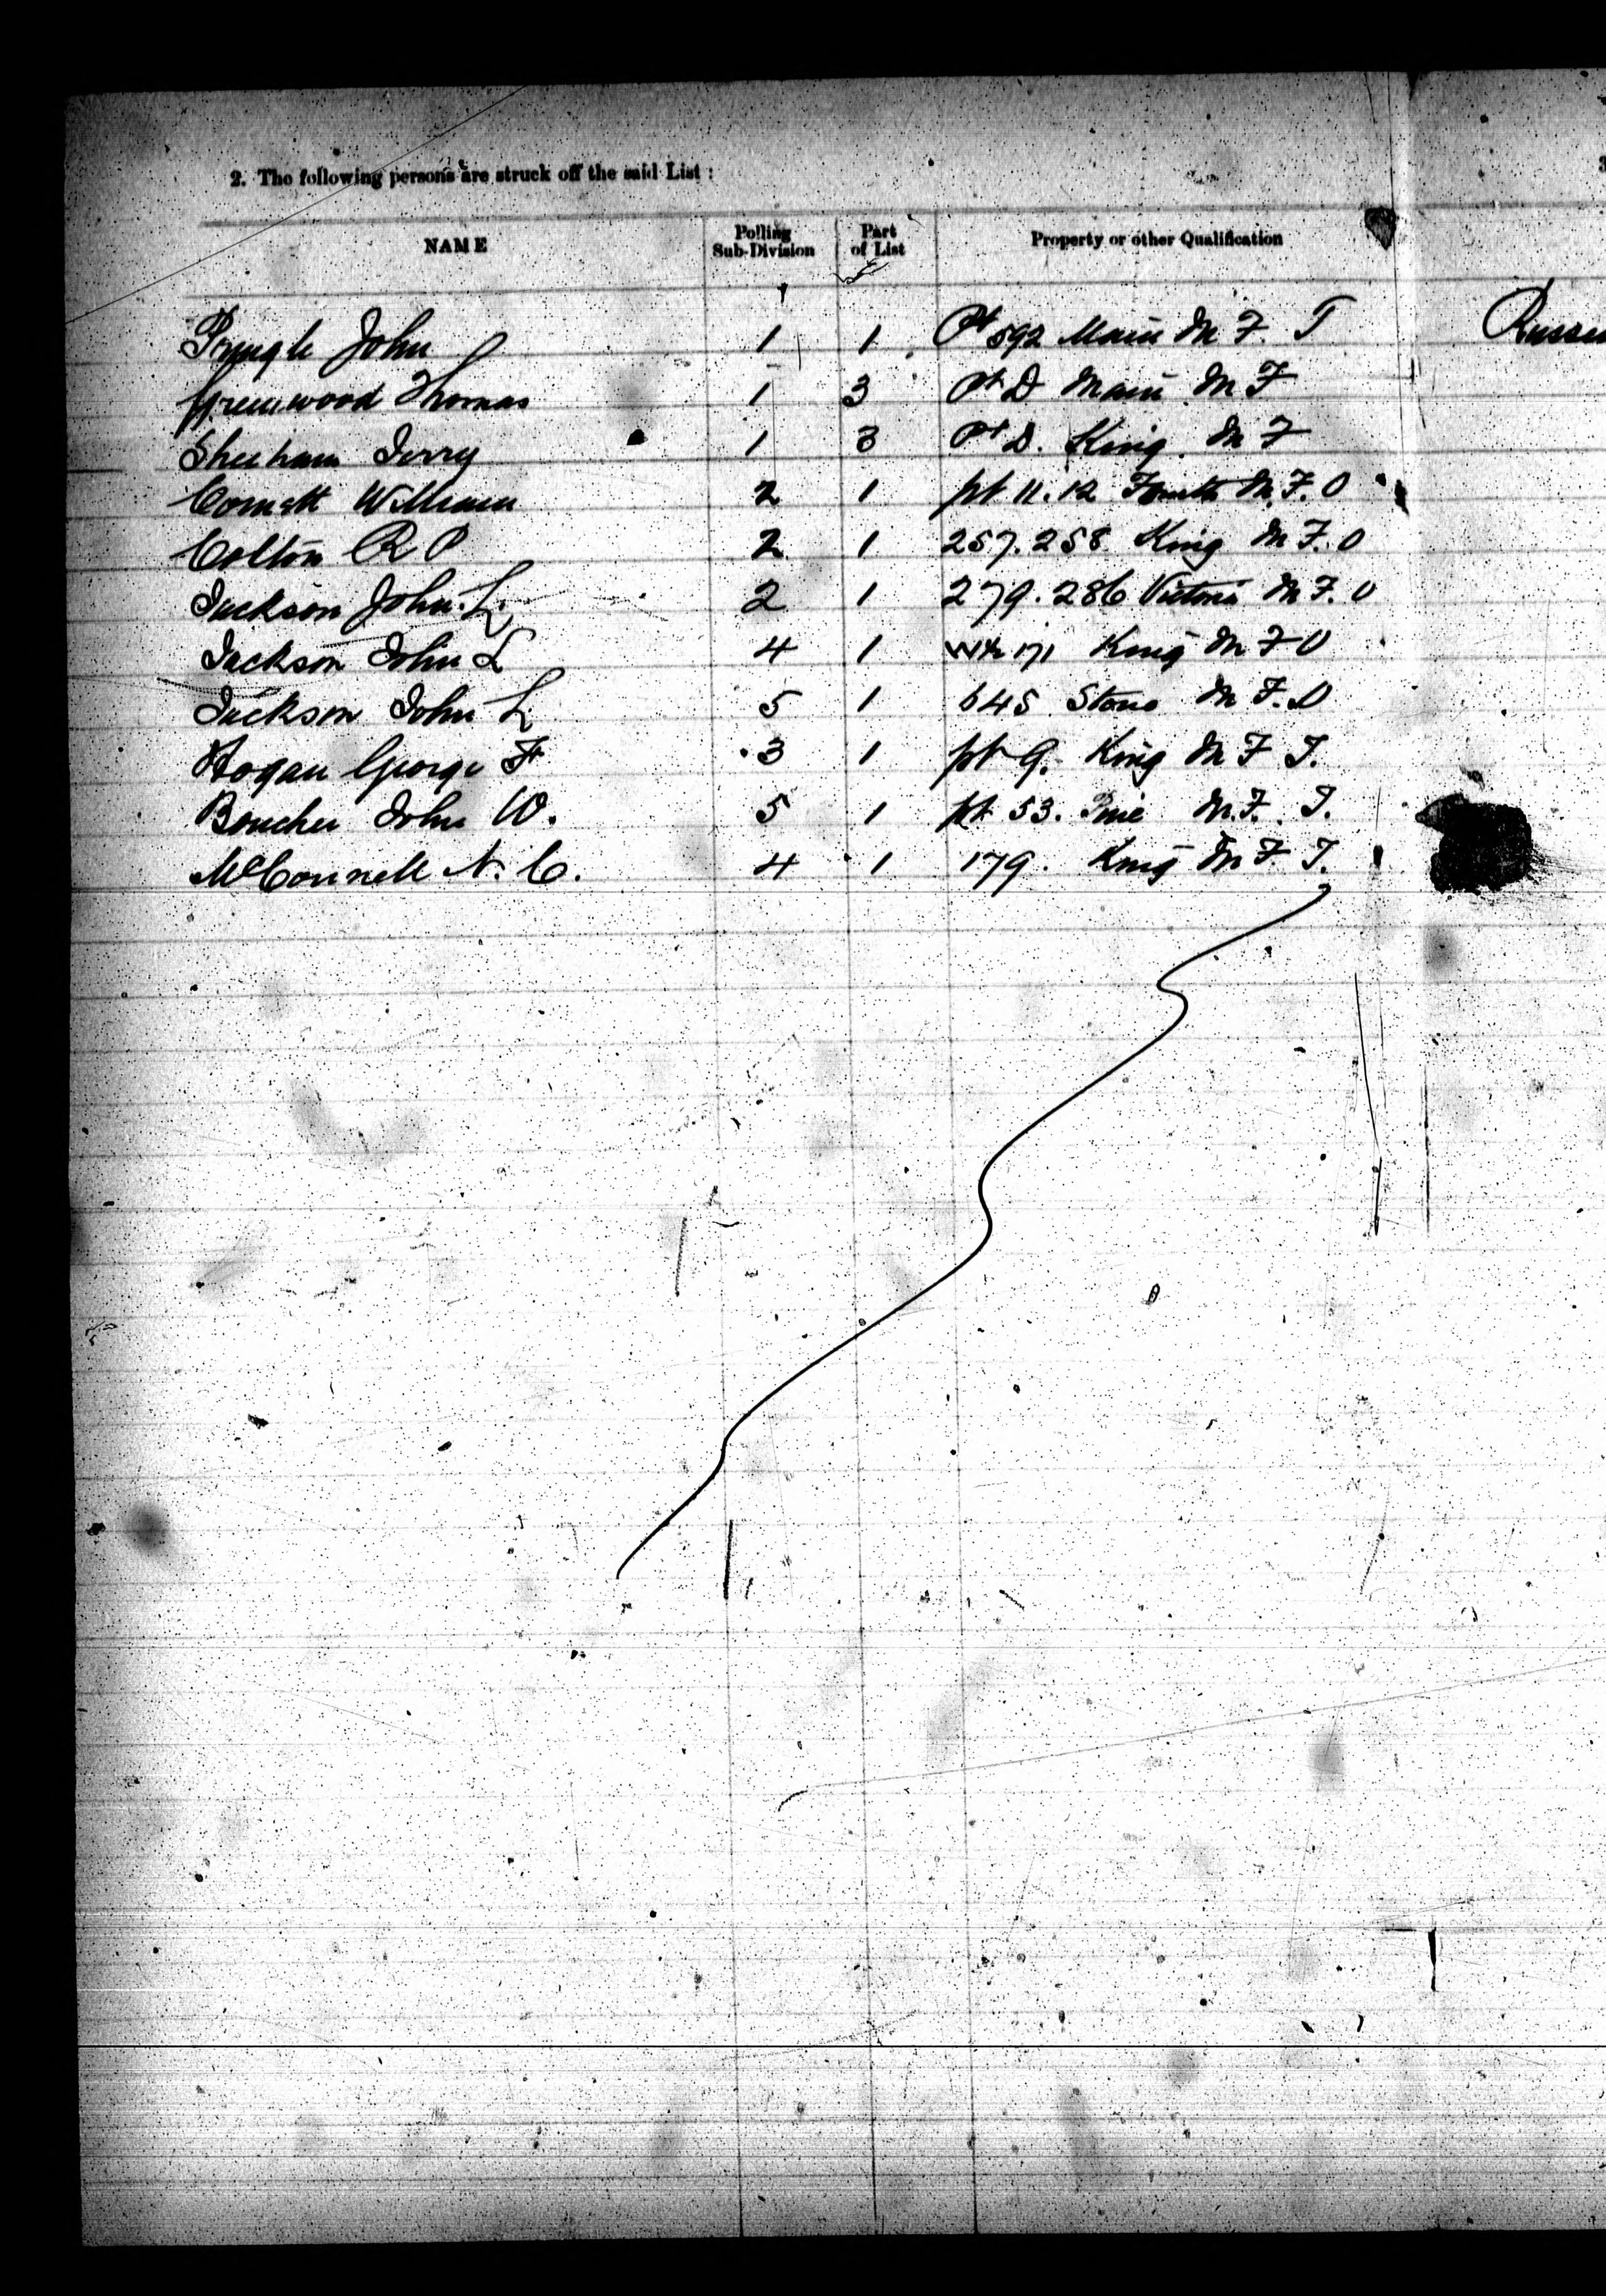 2. The following persons are struck off the said List :
NAME Polling Sub-Division Part of List Property or other Qualification
Pringle John 1 1 Pt 592 Main M F. T
Greenwood Thomas 1 3 Pt D Main M F
Sheeham Jerry 1 3 Pt D. King. M F
William 2 1 pt 11. 12 Fourth M. F. O
Colton R P 2 1 257. 258 King M F. O
Jackson John. L. 2 1 279. 286 Victoria M F. O
Jackson John L 4 1 171 King M F O
Jackson John L 5 1 645 Stone M F. O
Hogan George F 3 1 pt 9. King M F T.
Boucher John W. 5 1 pt 53. Pine M. F. T.
McConnell N. C. 4 1 179. King M F T.